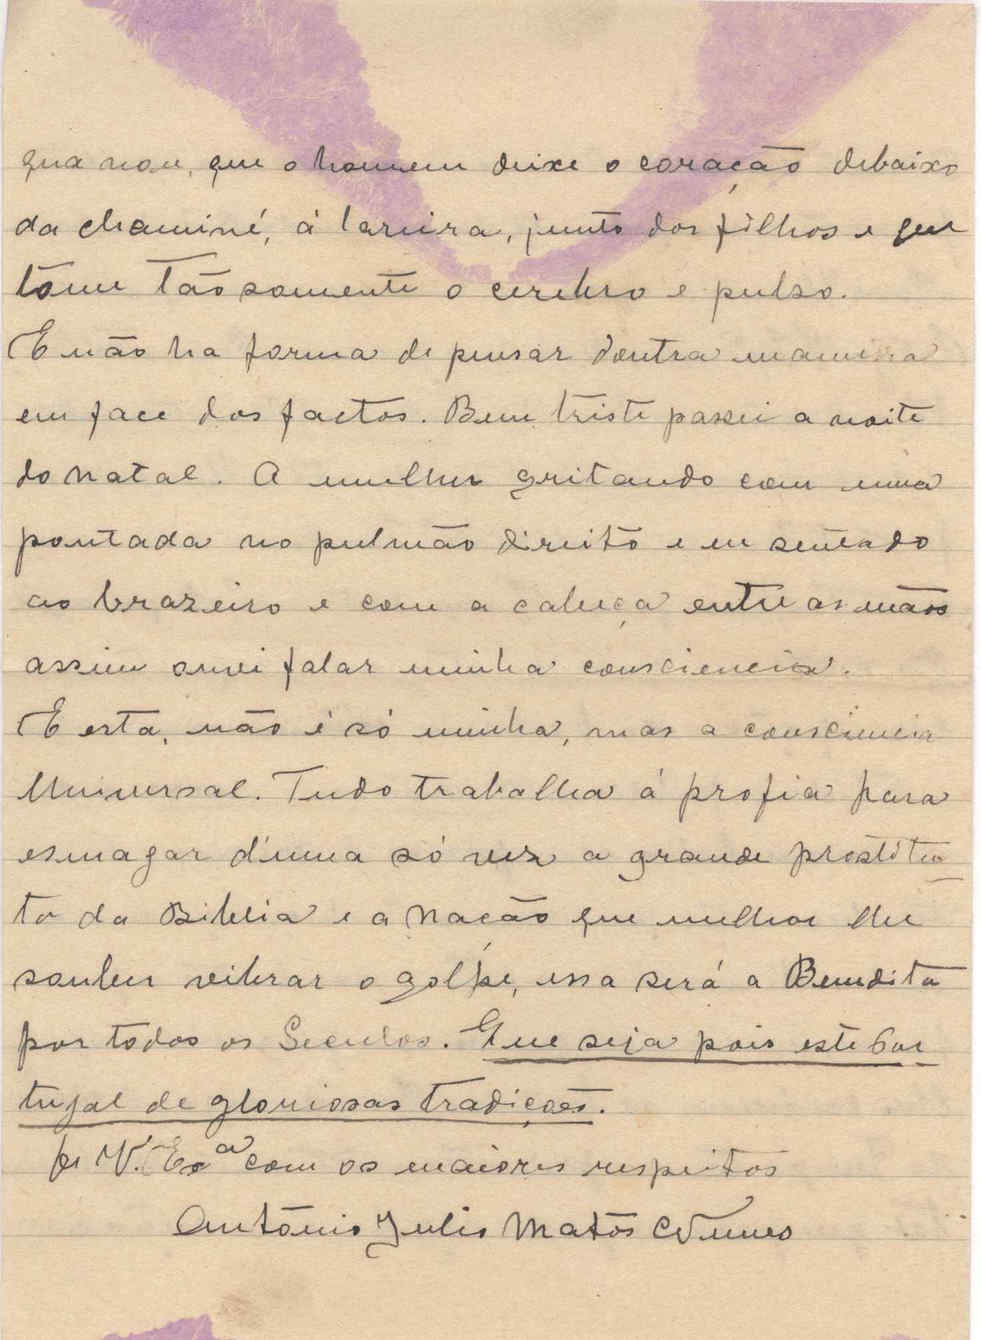 qua non, que o homem deixe o coração debaixo
da chaminé, á lareira, junto dos filhos e que
tome tão somente o cerebro e pulso.
E não ha forma de pensar doutra maneira
em face dos factos. Bem triste passei a noite
do natal. A mulher gritando com uma
pontada no pulmão direito e eu sentado
ao brazeiro e com a cabeça entre as mãos
assim ouvi falar minha consciencia.
E esta, não é só minha, mas a consciencia
Universal. Tudo trabalha á profia para
esmagar d'uma só vez a grande prostitu
ta da Biblia e a Nação que melhor lhe
souber vibrar o golpe, essa será a Bemdita
por todos os Seculos. Que seja pois este Por
tugal de gloriosas tradiçoes.
De V. Exª com os maiores respeitos
António Julio Matos Nunes